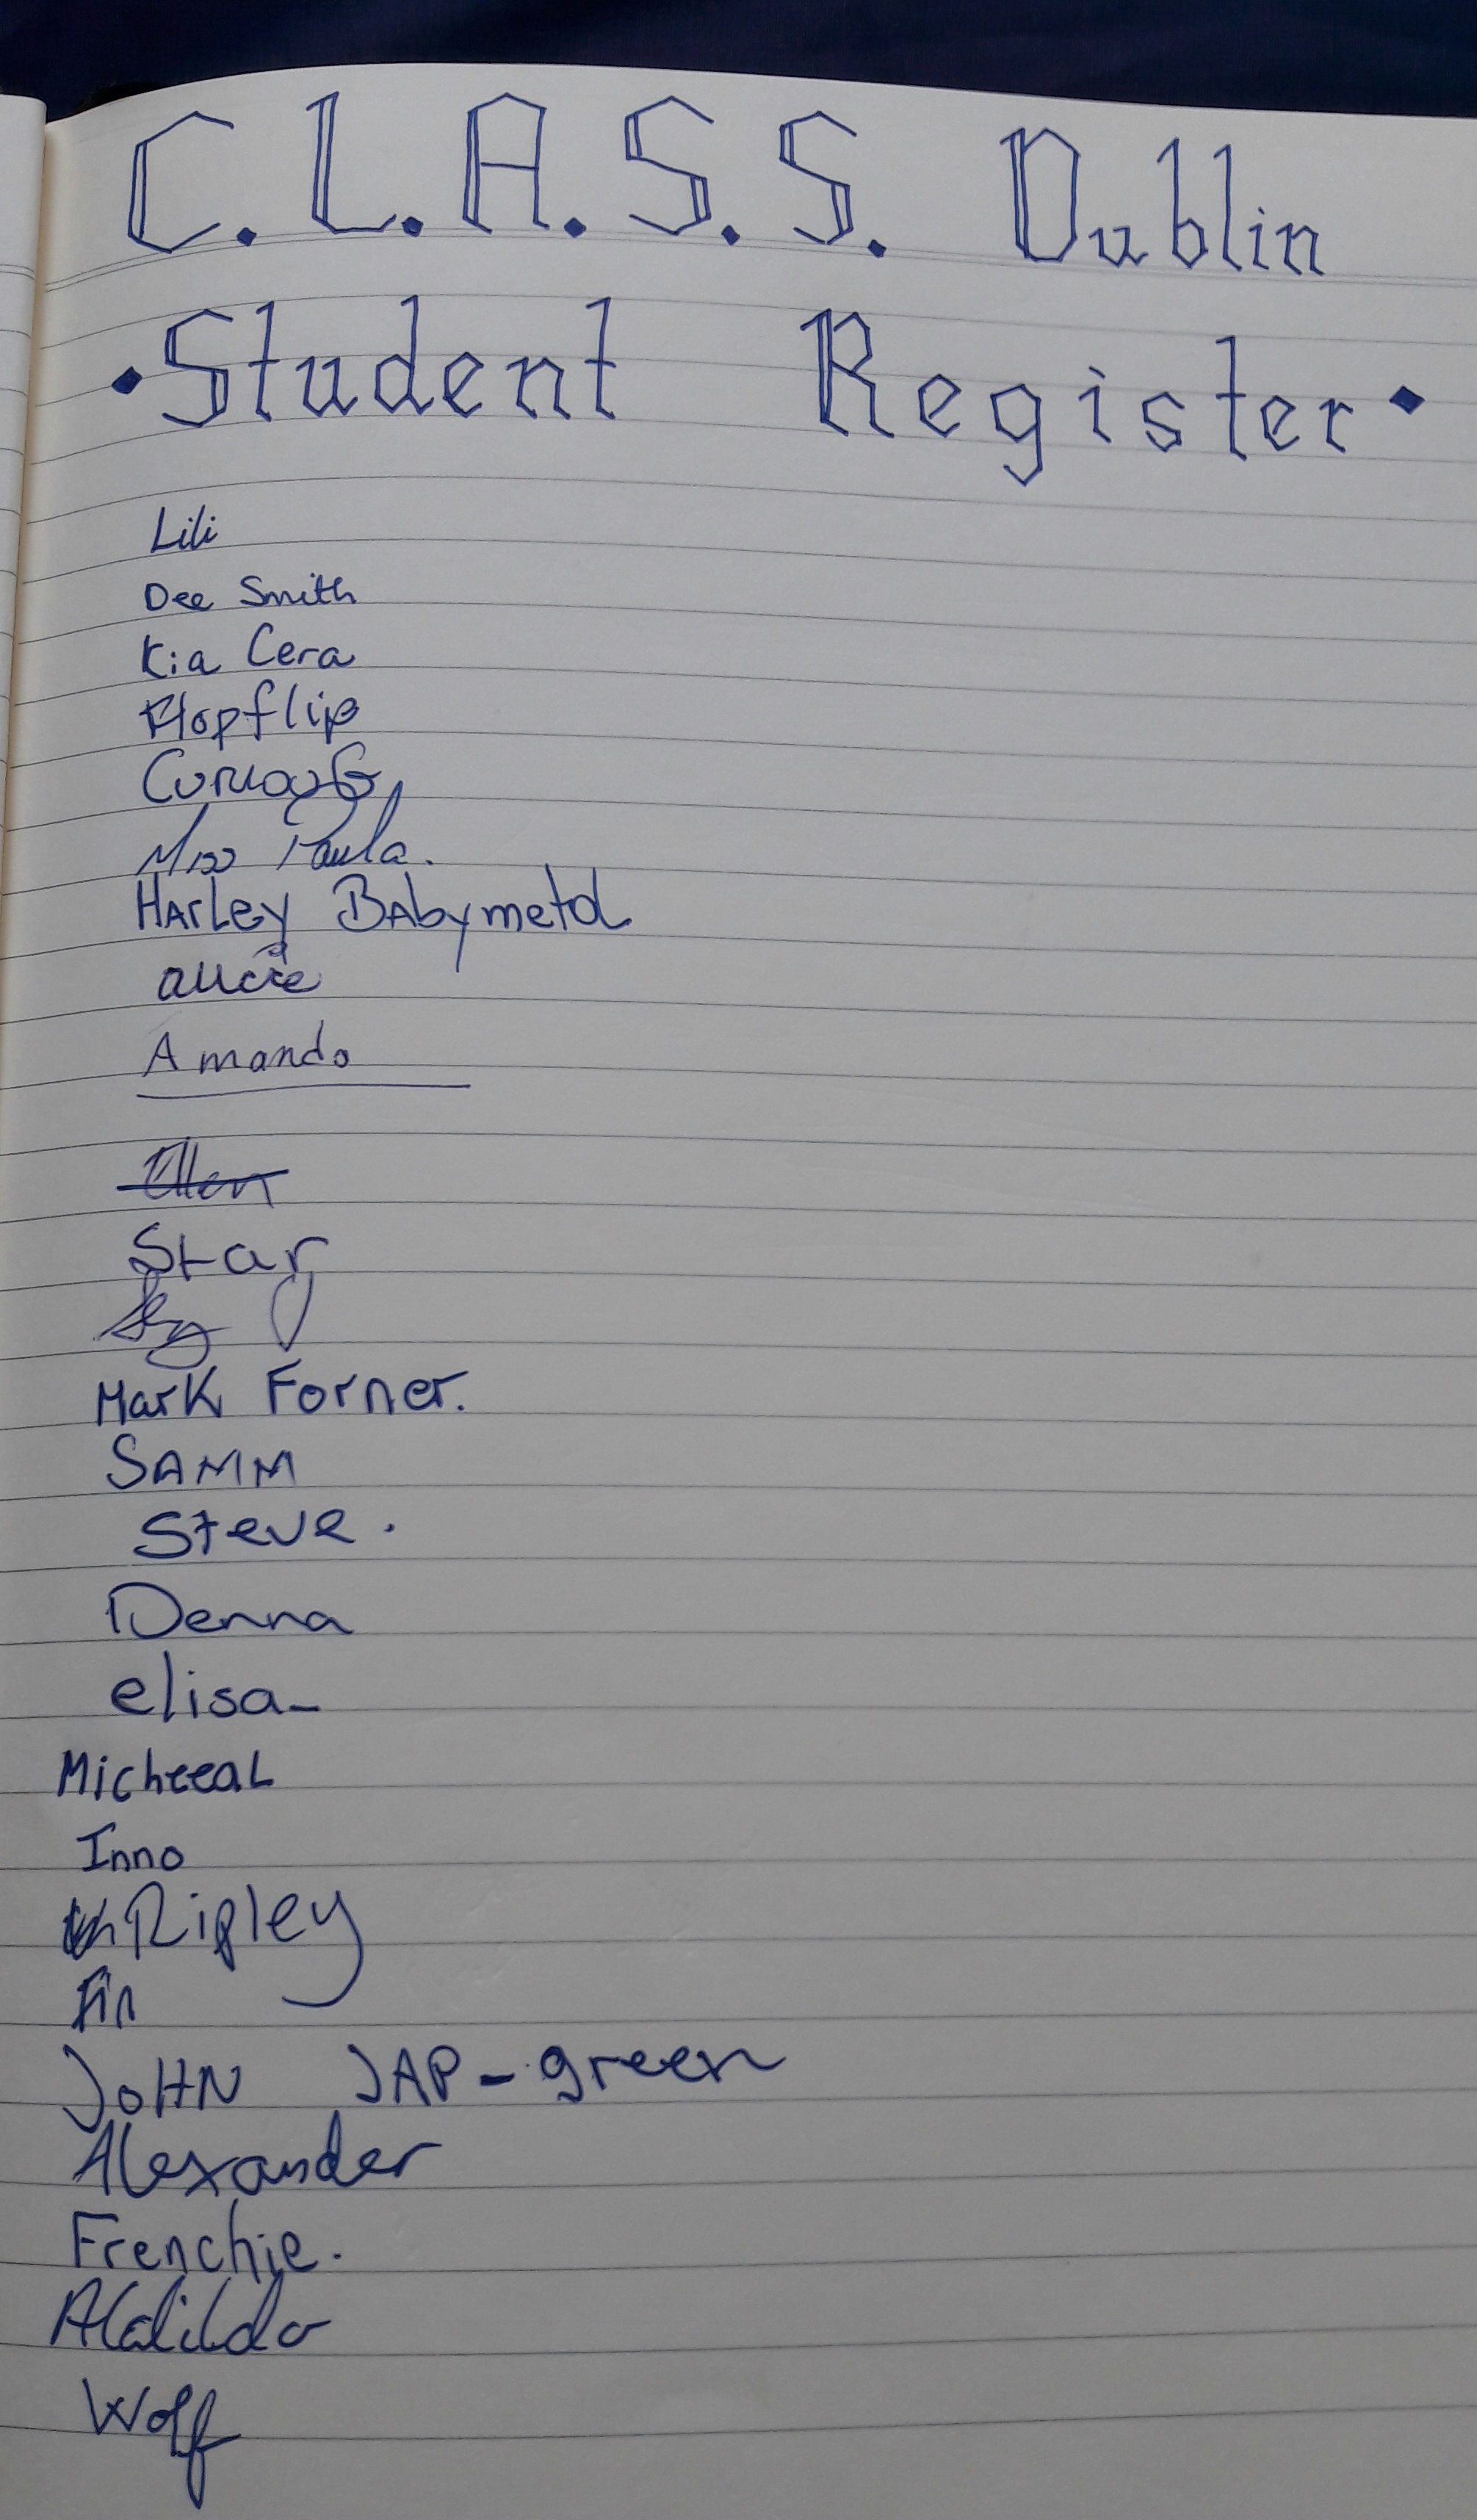 C.L.A.S.S. Dublin
Student Register
Lili
Dee Smith
Kia Cera
Hopflip
Miss Paula.
HArley BAbymetal
Amanda
Ellen
Star
Mark Forner.
SAMM
Steve.
Denna
elisa
MicheeaL
Inno
Ripley
Fin
JoHN JAP-green
Alexander
Frenchie.
Matilda
Wolf